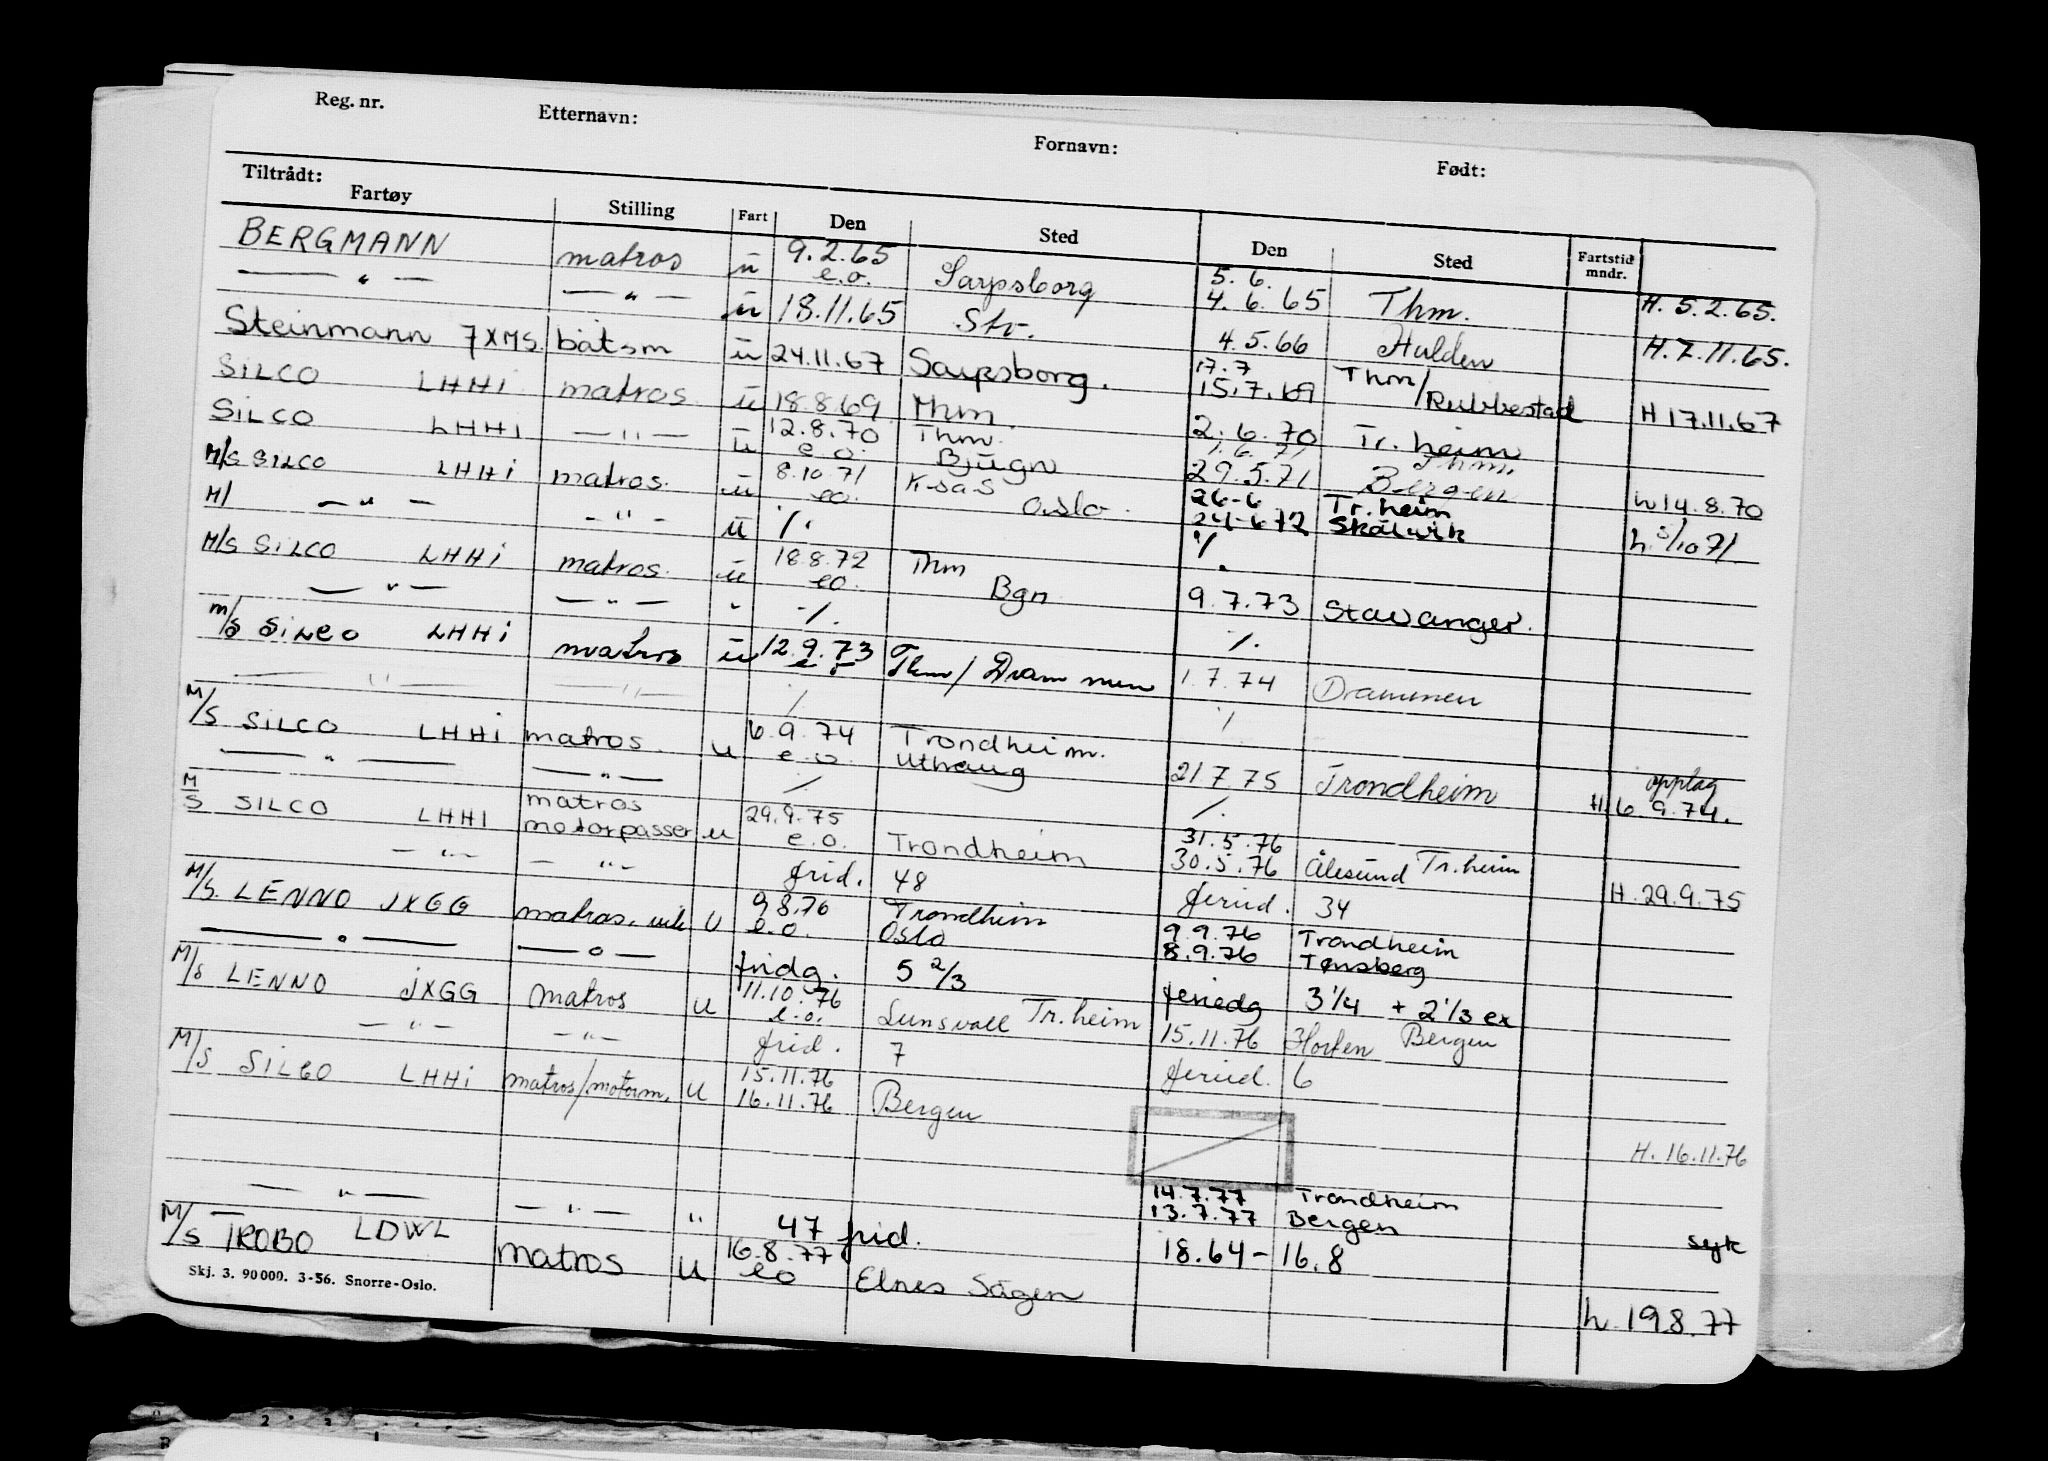 Reg. nr. Etternavn: Fornavn: Født:
Tiltrådt:
Fartøy Stilling Fart Den Sted Den Sted Fartstid mndr.
BERGMANN matros ū 9.2.65 e.o. Sarpsborg 5.6. 4.6.65 Thm. H. 5.2.65.
— " — — " — ū 18.11.65 Str. 4.5.66 Halden H. 7.11.65.
Steinmann 7XMS. båtsm ū 24.11.67 Sarpsborg. 17.7 15.7.69 Thm/Rubbestad H 17.11.67
SILCO LHHi matros ū 18.8.69 Thm. 2.6.70 Tr. heim
SILCO LHHI — " — ū 12.8.70 e.o. Thm. Bjugn 1.6.71 29.5.71 Thm. Bergen h 14.8.70
M/S SILCO LHHi matros. ū 8.10.71 eo. K-sas Oslo. 26-6 24-6 72 Tr.heim Skålvik h. 8/10 71
M/ — " — - " - ū ·/· ·/.
M/S SILCO LHHi matros. ū 18.8.72 eo. Thm Bgn 9.7.73 Stavanger.
— " — — " — " ·/. ·/.
m/s SILCO LHHi matros ū 12.9.73 e o Thm/Drammen 1.7.74 Drammen
— " — — " — / ·/
M/S SILCO LHHi matros. u 6.9.74 e.o. Trondheim. Uthaug 21.7.75 Trondheim opplag H. 6.9.74.
— " — — " — / /.
M/S SILCO LHHI matros motorpasser u 29.9.75 e.o. Trondheim 31.5.76 30.5.76 Ålesund Tr.heim H. 29.9.75
— " — — " - frid. 48 feried. 34
M/S. LENNO JXGG matros. U 9.8.76 e.o. Trondheim Oslo 9.9.76 8.9.76 Trondheim Tønsberg
— " — — o — fridg. 5 2/3 feriedg 3 1/4 + 2 1/3 ex
M/S LENNO JXGG matros u 11.10.76 e.o. Sunsvall Tr.heim 15.11.76 Horten Bergen
— " — — " - frid. 7 feried. 6
M/S SILCO LHHi matros/motorm. U 15.11.76 16.11.76 Bergen
H. 16.11.76
— " — — " — " 14.7.77 13.7.77 Trondheim Bergen
47 frid. 18.64 - 16.8 syk
M/S TROBO LDWL matros u 16.8.77 eo Elnes Sågen h. 19.8.77
Skj. 3. 90 000. 3-56. Snorre-Oslo.